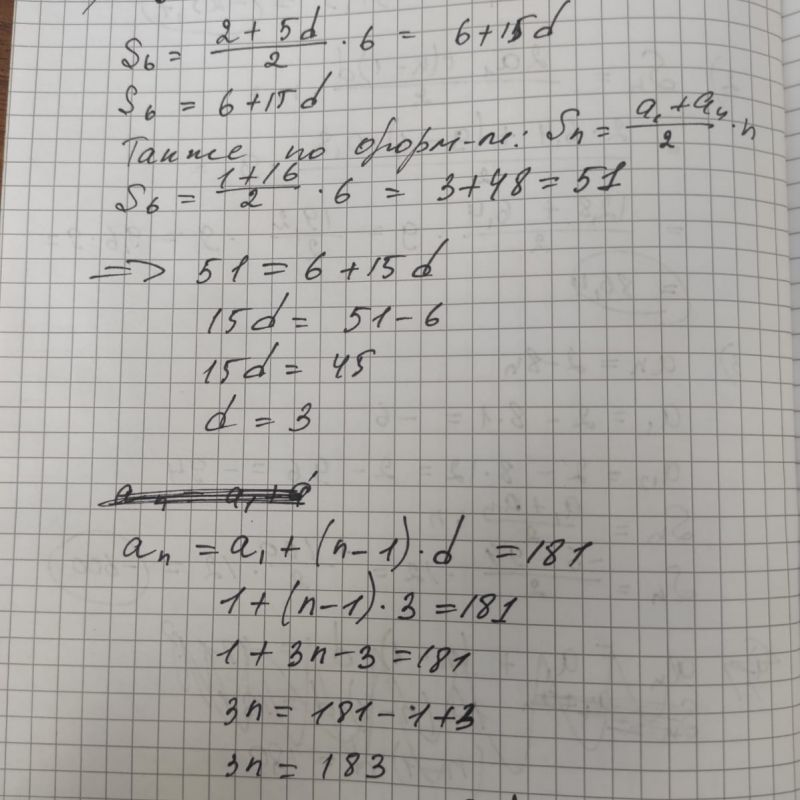 S₆ = (2 + 5d)/2 · 6 = 6 + 15d
S₆ = 6 + 15d
Также по форм-ле: Sₙ = (a₁ + aₙ)/2 · n
S₆ = (1 + 16)/2 · 6 = 3 + 48 = 51
=> 51 = 6 + 15d
15d = 51 - 6
15d = 45
d = 3
aₙ = a₁ + (n - 1) · d = 181
1 + (n - 1) · 3 = 181
1 + 3n - 3 = 181
3n = 181 - 1 + 3
3n = 183